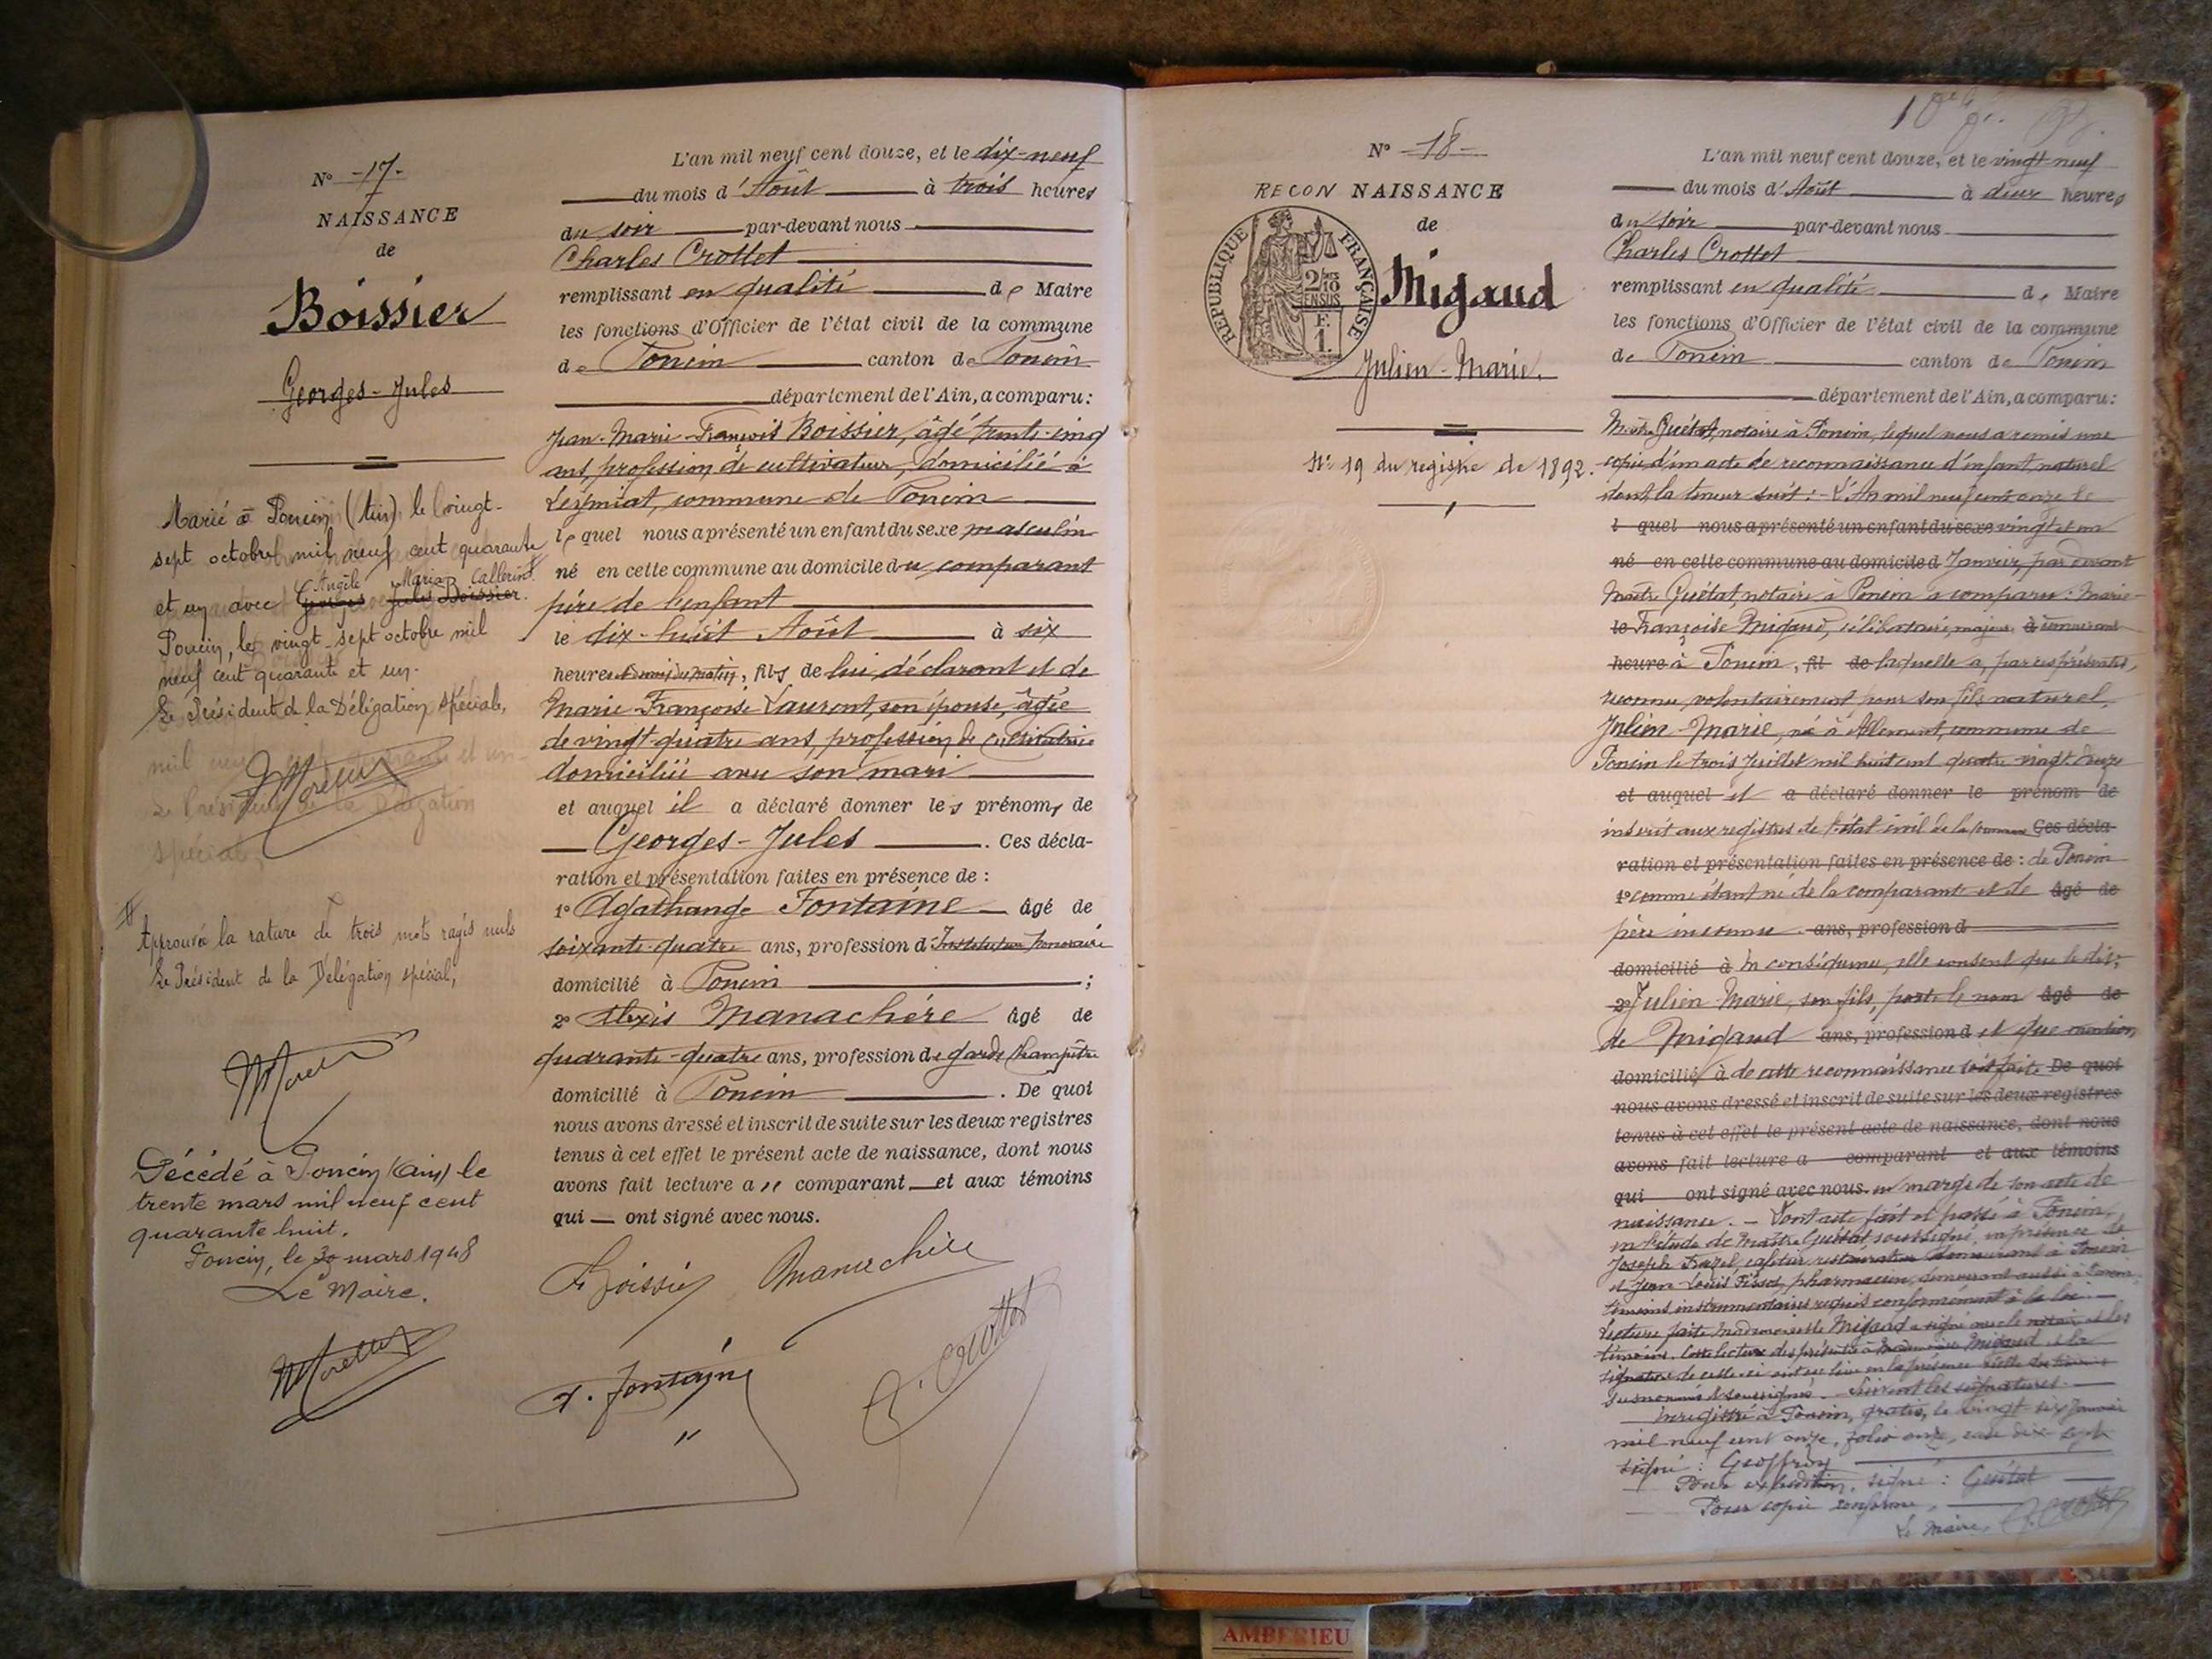 N° -17-
NAISSANCE
de
Boissier
Georges-Jules
Marié à Poncin (Ain) le vingt-
sept octobre mil neuf cent quarante
et un avec Georges Jules Boissier.
Angèle Maria Callerin
Poncin, le vingt-sept octobre mil
neuf cent quarante et un.
Le Président de la Délégation spéciale,
Approuvée la rature de trois mots rayés nuls
Le Président de la Délégation spécial,
Décédé à Poncin (Ain) le
trente mars mil neuf cent
quarante huit.
Poncin, le 30 mars 1948
Le Maire.
L'an mil neuf cent douze, et le dix-neuf
du mois d'Août à trois heures
du soir par-devant nous
Charles Crottet
remplissant en qualité de Maire
les fonctions d'Officier de l'état civil de la commune
de Poncin canton de Poncin
département de l'Ain, a comparu:
Jean-Marie-François Boissier, âgé trente-cinq
ans, profession de cultivateur, domicilié à
Leymiat, commune de Poncin
lequel nous a présenté un enfant du sexe masculin
né en cette commune au domicile du comparant
père de l'enfant
le dix-huit Août à six
heures et demie du matin, fils de lui déclarant et de
Marie-Françoise Laurent, son épouse, âgée
de vingt-quatre ans, profession de cultivatrice
domiciliée avec son mari
et auquel il a déclaré donner les prénoms de
Georges-Jules. Ces décla-
ration et présentation faites en présence de :
1° Agathange Fontaine âgé de
soixante-quatre ans, profession d'Instituteur honoraire
domicilié à Poncin ;
2° Alexis Manachère âgé de
quarante-quatre ans, profession de garde champêtre
domicilié à Poncin. De quoi
nous avons dressé et inscrit de suite sur les deux registres
tenus à cet effet le présent acte de naissance, dont nous
avons fait lecture au comparant et aux témoins
qui ont signé avec nous.
Boissier Manachère
A. Fontaine C. Crottet
N° -18-
RECON NAISSANCE
de
REPUBLIQUE FRANÇAISE
Migaud
Julien-Marie.
N° 19 du registre de 1892.
L'an mil neuf cent douze, et le vingt neuf
du mois d'Août à deux heures
du soir par-devant nous
Charles Crottet
remplissant en qualité de Maire
les fonctions d'Officier de l'état civil de la commune
de Poncin canton de Poncin
département de l'Ain, a comparu:
Maître Guétat, notaire à Poncin, lequel nous a remis une
copie d'un acte de reconnaissance d'enfant naturel
dont la teneur suit : - L'An mil neuf cent onze le
l quel nous a présenté un enfant du sexe vingt et un
né en cette commune au domicile d Janvier, par devant
Maître Guétat, notaire à Poncin a comparu : Marie-
le Françoise Migaud, célibataire, majeure, à demeurant
heure à Poncin, fil de laquelle a, par ces présentes,
reconnu volontairement pour son fils naturel,
Julien-Marie, né à Allement, commune de
Poncin le trois Juillet mil huit cent quatre vingt douze
et auquel il a déclaré donner le prénom de
inscrit aux registres de l'état civil de la commune Ces décla-
ration et présentation faites en présence de : de Poncin
1° comme étant né de la comparante et de âgé de
père inconnu. ans, profession d
domicilié à En conséquence, elle consent que le dit ;
2° Julien-Marie, son fils, porte le nom âgé de
de Migaud ans, profession d et que mention
domicilié à de cette reconnaissance soit faite De quoi
nous avons dressé et inscrit de suite sur les deux registres
tenus à cet effet le présent acte de naissance, dont nous
avons fait lecture a comparant et aux témoins
qui ont signé avec nous. en marge de son acte de
naissance. - Dont acte fait et passé à Poncin,
en l'étude de Maître Guétat soussigné, en présence de
Joseph cafetier restaurateur demeurant à Poncin
et Jean-Louis pharmacien, demeurant aussi à Poncin,
témoins instrumentaires requis conformément à la loi.
Lecture faite, Mademoiselle Migaud a signé avec le notaire et les
témoins. Cette lecture des présentes à Mademoiselle Migaud et la
signature de celle-ci ont eu lieu en la présence réelle des témoins
susnommés & soussignés. Suivent les signatures.
Enregistré à Poncin, gratis, le vingt six Janvier
mil neuf cent onze, folio onze, case dix-sept
signé : Geoffroy
Pour expédition, signé : Guétat
Pour copie conforme,
Le Maire, C. Crottet
AMBERIEU